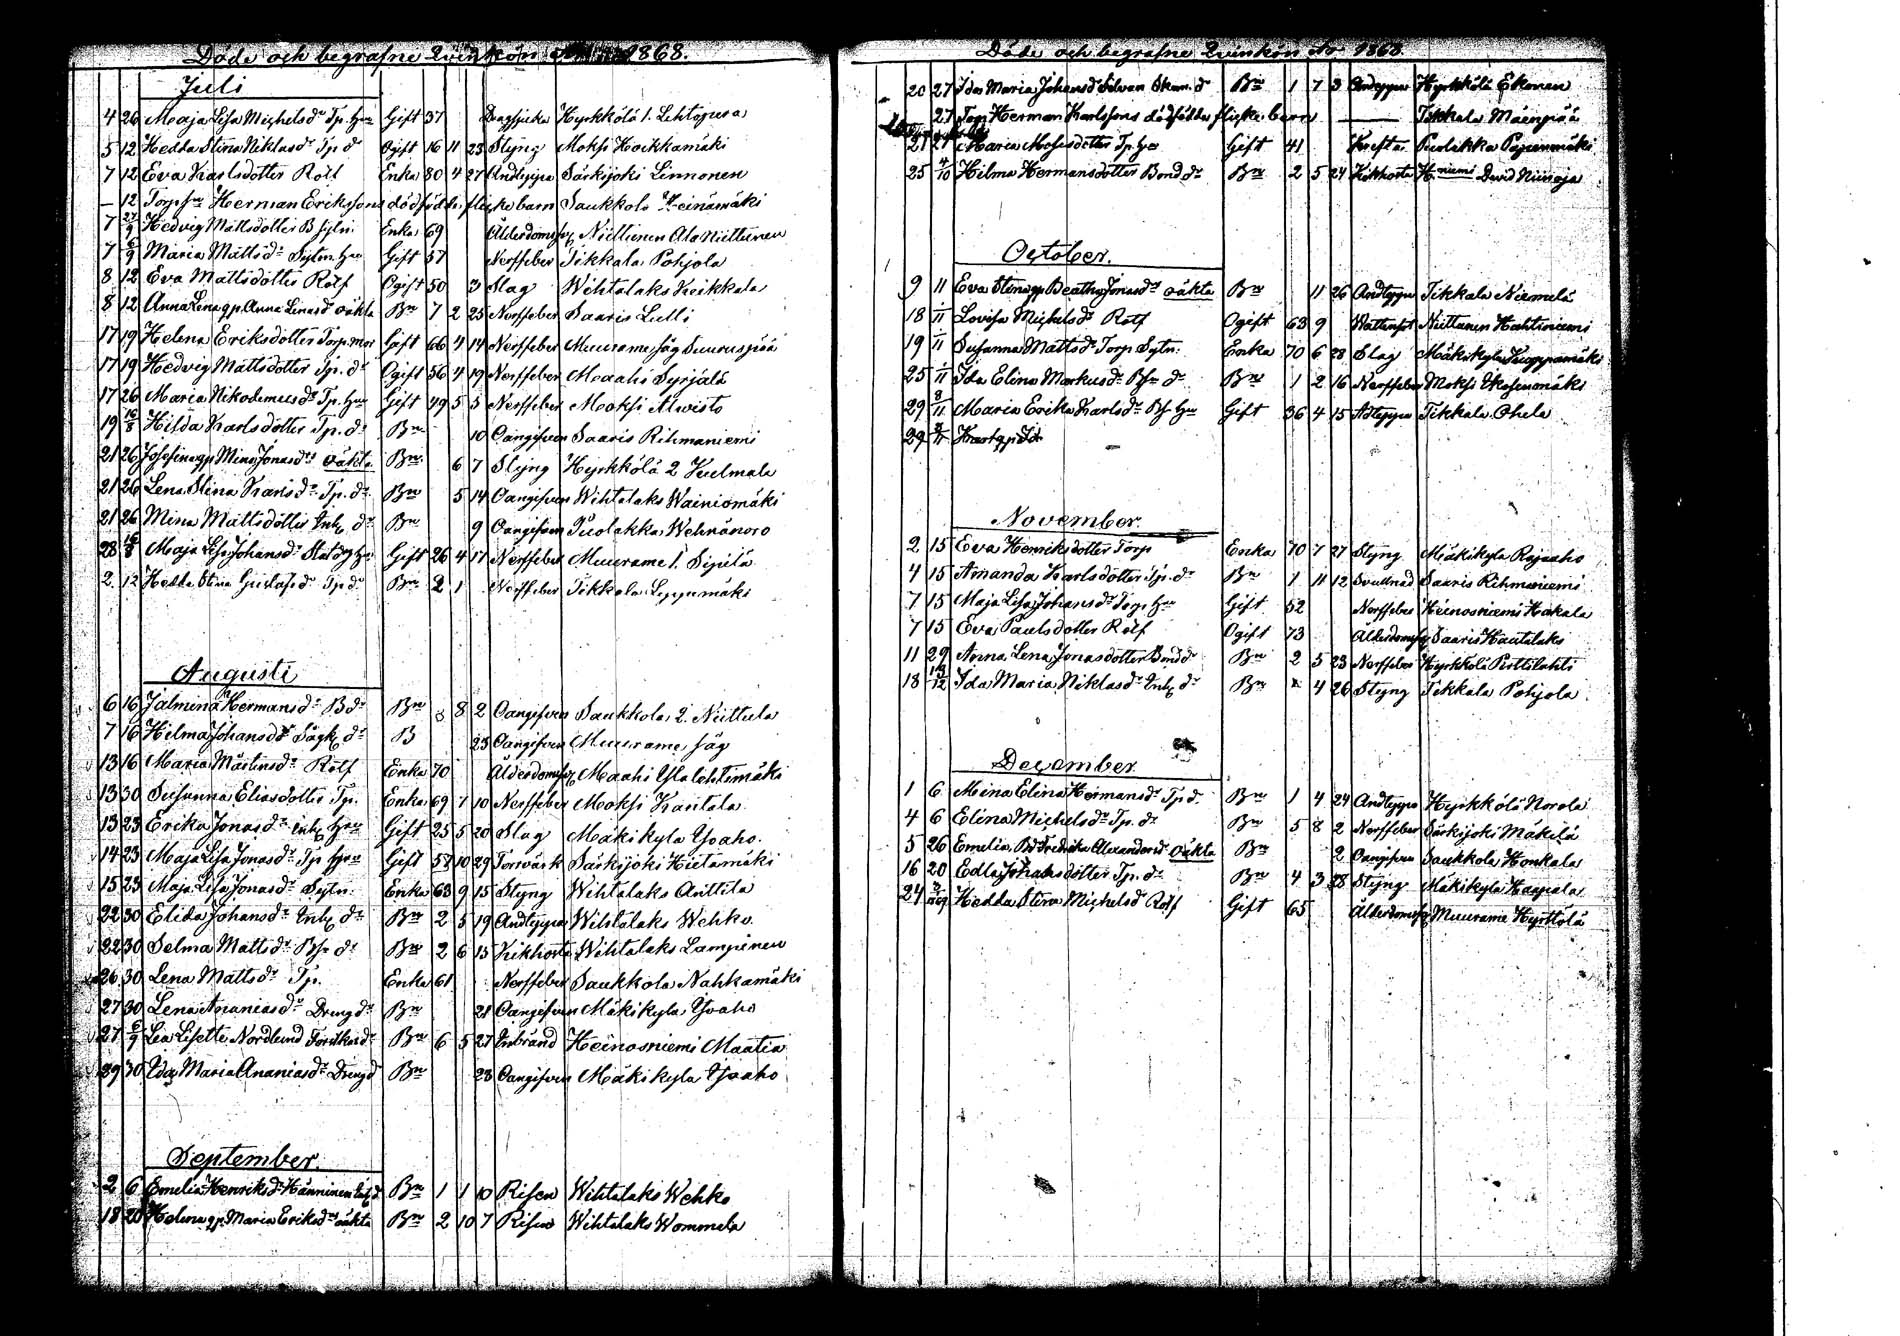 Döde och begrafne Qvinkön 1868.
Juli
4 26 Maja Lisa Michelsd:r Tp. hu Gift 37 Dragsjuka Hyrkkölä 1. Lehtopera
5 12 Hedda Stina Niklasd:r Tp. d:r Ogift 16 11 23 Styng Moksi Hoikkamäki
7 12 Eva Karlsdotter Rotf Enka 80 4 27 Andtyppa Särkijoki Linnonen
— 12 Torpf:ns Herman Erikssons dödfödda flicke barn Saukkola Heinämäki
7 27/9 Hedvig Mattsdotter B sytn. Enka 69 Ålderdomsb Niittunen Ala Niittunen
7 6/9 Maria Mattsd:r Sytn. hu Gift 57 Nerffeber Tikkala Pohjola
8 12 Eva Mattsdotter Rotf Ogift 50 3 Slag Wihtalaks Keikkala
8 12 Anna Lena gp. Anna Lenasd oäkta B:n 7 2 25 Nerffeber Saaris Lulli
17 19 Helena Eriksdotter Torp. mor Gift 66 4 14 Nerffeber Muurame såg Suuruspää
17 19 Hedvig Mattsdotter Tp. d:r Ogift 56 4 19 Nerffeber Maahi Syrjälä
17 26 Maria Nikodemusd:r Tp. hu Gift 49 5 5 Nerffeber Moksi Alwisto
19 16/8 Hilda Karlsdotter Tp. d:r B:n 10 Oangifven Saaris Rihmaniemi
21 26 Josefina gp Mina Jonasd:r oäkta B:n 6 7 Styng Hyrkkölä 2 Kuelmala
21 26 Lena Stina Karlsd:r Tp. d:r B:n 5 14 Oangifven Wihtalaks Wainiomäki
21 26 Mina Mattsdotter Inh. d:r B:n 9 Oangifven Puolakka Wehnänoro
28 16/8 Maja Lisa Johansd:r Gift 26 4 17 Nerffeber Muurame 1. Sipilä
2. 12 Hedda Stina Gustafsd:r Tp d:r B:n 2 1 Nerffeber Tikkala Leppämäki
Augusti
6 16 Jalmina Hermansd:r B d:r B:n 8 2 Oangifven Saukkola 2. Niittula
7 16 Hilma Johansd:r Sågk. d:r B 23 Oangifven Muurame såg
13 16 Maria Mårtensd:r Rotf Enka 70 Ålderdomsb Maahi Ylalehtimäki
13 30 Susanna Eliasdotter Tp. Enka 69 7 10 Nerffeber Moksi Kantala
13 23 Erika Jonasd:r Inh hu Gift 25 5 20 Slag Mäkikyla Yoaho.
14 23 Maja Lisa Jonasd:r Tp hu Gift 57 10 29 Torrvärk Särkijoki Hietamäki
15 23 Maja Lisa Jonasd:r Sytn. Enka 63 9 15 Styng Wihtalaks Anttila
22 30 Elida Johansd:r Inh. d:r B:n 2 5 19 Andtyppa Wihtalaks Wehko.
22 30 Selma Mattsd:r Bf. d:r B:n 2 6 15 Kikhosta Wihtalaks Lampinen
26 30 Lena Mattsd:r Tp. Enka 61 Nerffeber Saukkola Nahkamäki
27 30 Lena Ananiasd:r Dreng d:r B:n 21 Oangifven Mäkikyla Yoaho
27 6/9 Lea Lisette Nordlund B:n 6 5 27 Inbränd Heinosniemi Maatia
29 30 Eda Maria Ananiasd:r Dreng d B:n 28 Oangifven Mäkikyla Yoaho
September.
2 6 Emelia Henriksd:r Hänninen Inh. d B:n 1 1 10 Risen Wihtalaks Wehko
18 20 Helena gp. Maria Eriksd:r oäkta B:n 2 10 7 Risen Wihtalaks Wommela
Döde och begrafne Qvinkön År 1868
20 27 Ida Maria Johansd Silvan Skom. d:r B:n 1 7 3 Andtyppa Hyrkkölä Ekonen
27 Torp. Herman Karlssons dödfödda flicke barn — Tikkala Mäenpää
21 27 Maria Mosesdotter Tp. hu Gift 41 Puolakka Papinmäki
25 4/10 Hilma Hermansdotter Bond. d:r B:n 2 5 24 Kikhosta H.niemi David Niiroja
October.
9 11 Eva Stina gp Beatha Jonasd:r oäkta B:n 11 26 Andtyppa Tikkala Niemelä
18 1/11 Lovisa Michelsd:r Rotf Ogift 63 9 Wattensot Niittunen Hahtiniemi
19 1/11 Susanna Mattsd:r Torp Sytn: Enka 70 6 28 Slag Mäkikyla Kuoppamäki
25 1/11 Ida Elina Markusd:r Bf d:r B:n 1 2 16 Nerffeber Moksi Ykosenmäki
29 8/11 Maria Erika Karlsd:r Bf hu Gift 36 4 15 Andtyppa Tikkala Ohela
29
November.
2 15 Eva Henriksdotter Torp Enka 70 7 27 Styng Mäkikyla Rajaaho
4 15 Amanda Karlsdotter Tp. d:r B:n 1 11 12 Svullnad Saaris Rihmaniemi
7 15 Maja Lisa Johansd:r Torp hu Gift 52 Nerffeber Heinosniemi Hakala
7 15 Eva Paulsdotter Rotf Ogift 73 Ålderdomsb Saaris Hautalaks
11 29 Anna Lena Jonasdotter Bond d:r B:n 2 5 23 Nerffeber Hyrkkölä Pirttilahti
18 13/12 Ida Maria Niklasd:r Inh. d:r B:n 4 26 Styng Tikkala Pohjola
December
1 6 Mina Elina Hermansd:r Tp d. B:n 1 4 24 Andtyppa Hyrkkölä Norola
4 6 Elina Michelsd:r Tp. d:r B:n 5 8 2 Nerffeber Särkijoki Mäkilä
5 26 Emelia Fredrika Alexandersd oäkta B:n 2 Oangifven Saukkola Honkala
16 20 Edla Johansdotter Tp. d:r B:n 4 3 28 Styng Mäkikyla Haapala
24 Hedda Stina Michelsd Rotf Gift 65 Ålderdomsb Muurame Hyrttölä